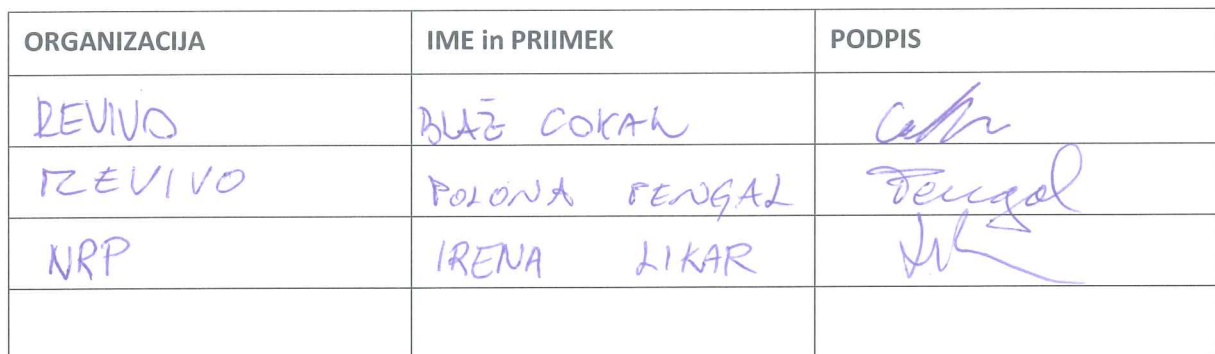 ORGANIZACIJA IME in PRIIMEK PODPIS
REVIVO BLAŽ COKAN
REVIVO POLONA PENGAL Pengal
NRP IRENA LIKAR